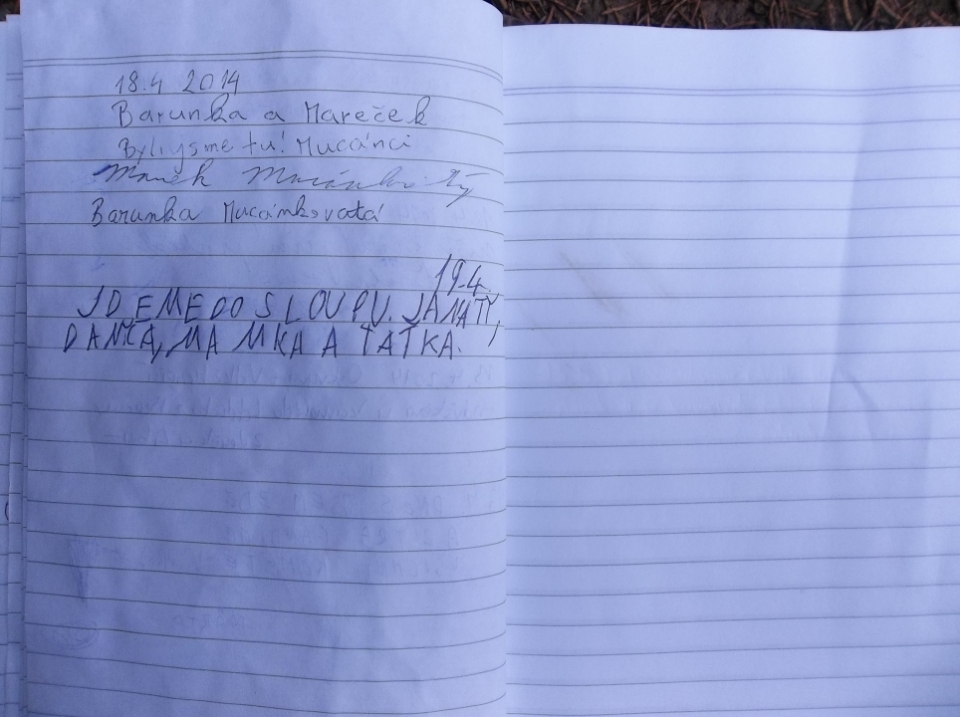 18.4 2014
Barunka a Mareček
Byli jsme tu! Mucánci
Marek
Barunka Mucánkovatá
19.4.
JDEME DO SLOUPU. JÁ NATY,
DANČA, MAMKA A TAŤKA.